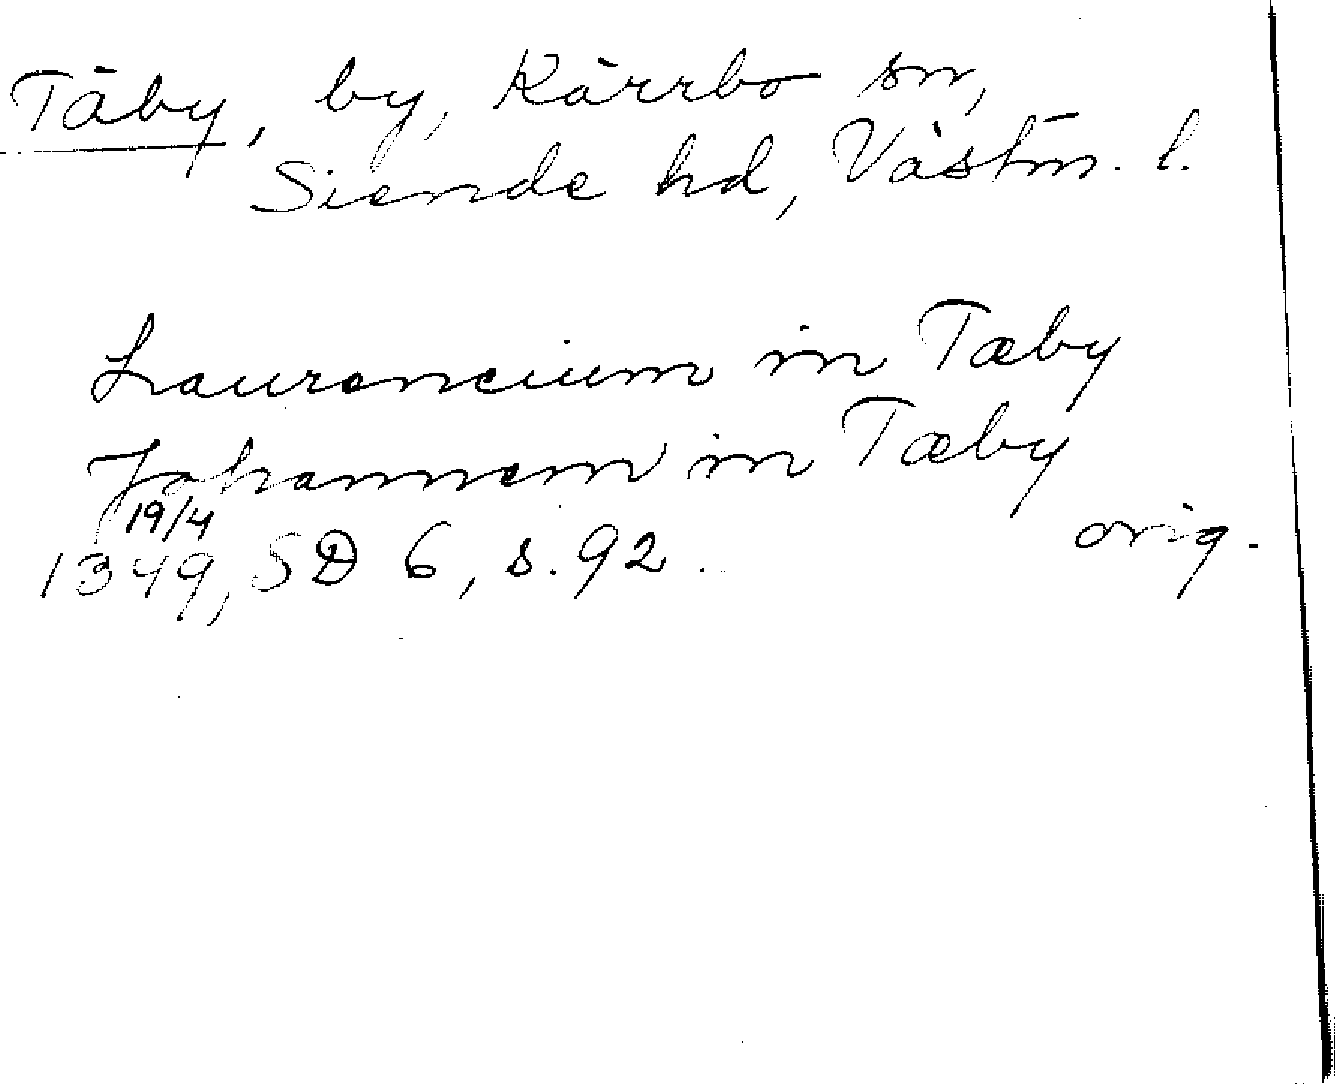 Täby, by, Kärrbo sn,
Siende hd, Västm. l.
Laurencium in Tæby
Johannem in Tæby
19/4
1349, SD 6, s. 92. orig.